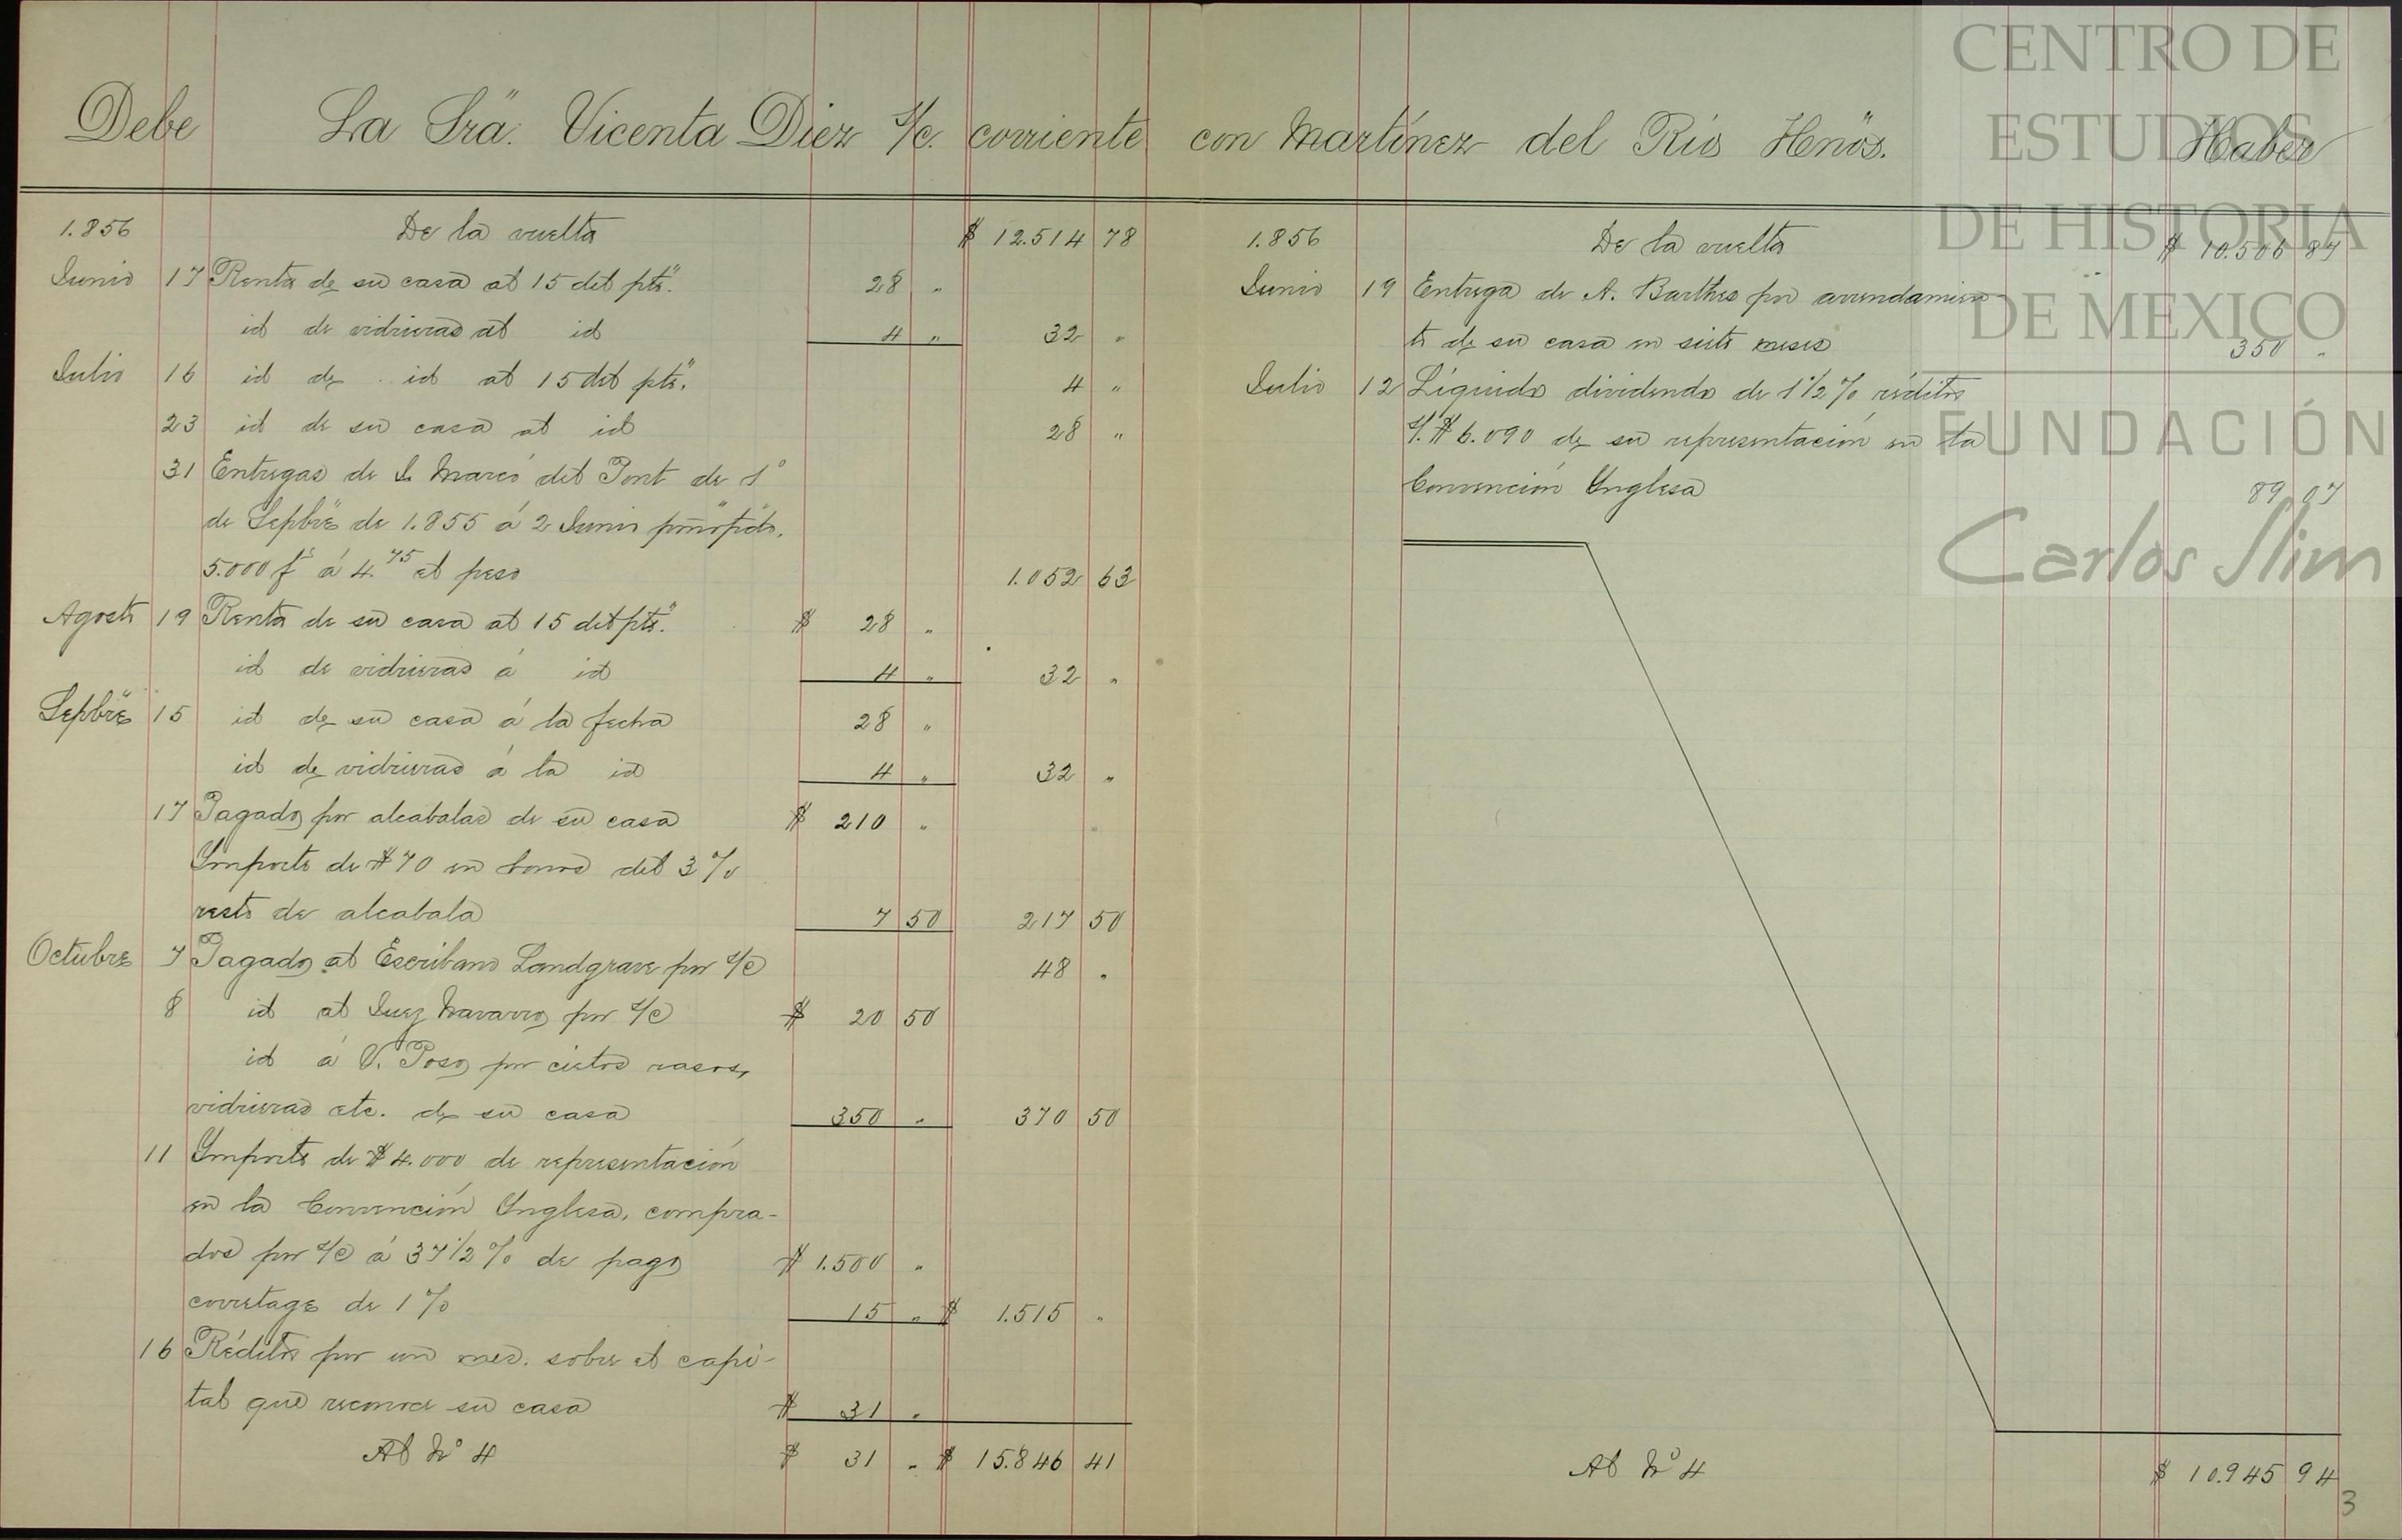 Debe La Sra. Vicenta Diez s/c. corriente con Martínez del Río Henos. Haber
1.856 De la vuelta $ 12.514 78
Junio 17 Renta de su casa al 15 del pte.
28 "
id de vidrieras al id 4 " 32 "
Julio 16 id de id al 15 del pte. 4 "
23 id de su casa al id 28 "
31 Entregas de J. Marcó del Pont de 1°
de Sepbre de 1.855 á 2 Junio
5.000 f á 4.75 el peso 1.052 63
Agosto 19 Renta de su casa al 15 del pte. $ 28 "
id de vidrieras á id 4 " 32 "
Sepbre 15 id de su casa á la fecha 28 "
id de vidrieras á la id 4 " 32 "
17 Pagado por alcabalas de su casa $ 210 "
Importe de $ 70 en bonos del 3 %
resto de alcabala 7 50 217 50
Octubre 7 Pagado al Escribano Landgrave por s/c 48 "
8 id al Juez Navarro por s/c $ 20 50
id á V. Poso por cielos rasos,
vidrieras etc. de su casa 350 " 370 50
11 Importe de $ 4.000 de representación
en la Convención Inglesa, compra-
dos por s/c á 37 1/2 % de pago $ 1.500 "
corretage de 1 % 15 " $ 1.515 "
16 Réditos por un mes. sobre el capi-
tal que reconoce su casa $ 31 "
Al No 4 $ 31 " $ 15.846 41
1.856 De la vuelta $ 10.506 87
Junio 19 Entrega de A. Barthes por arrendamien-
to de su casa en siete meses 350 "
Julio 12 Líquido dividendo de 1 1/2 % réditos
s. $ 6.090 de su representación en la
Convención Inglesa 89 07
Al No 4 $ 10.945 94
3
CENTRO DE
ESTUDIOS
DE HISTORIA
DE MEXICO
FUNDACIÓN
Carlos Slim